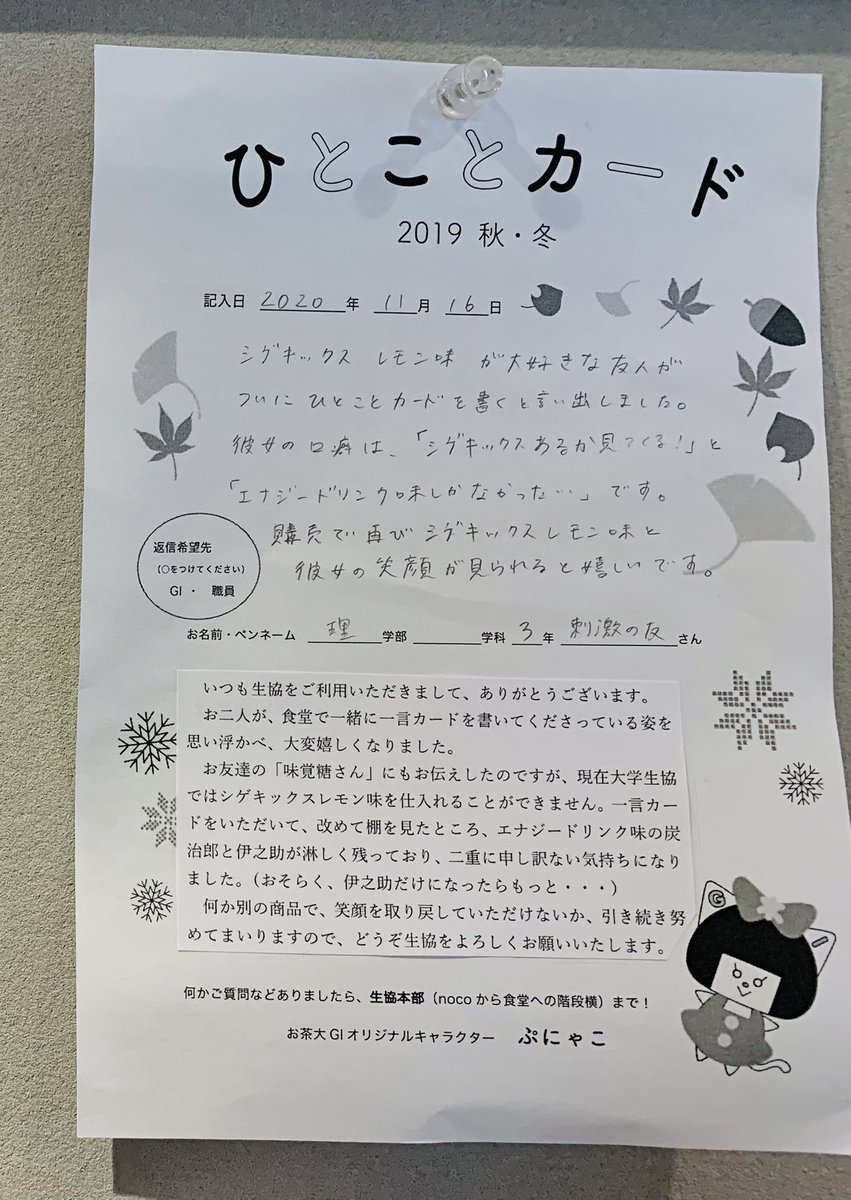 ひとことカード
2019 秋・冬
記入日 2020 年 11 月 16 日
シゲキックス レモン味 が大好きな友人が
ついに ひとことカードを書くと言い出しました。
彼女の口癖は、「シゲキックスあるか見てくる!」と
「エナジードリンク味しかなかった…」です。
購売で再び シゲキックスレモン味と
彼女の笑顔が見られると嬉しいです。
返信希望先
(○をつけてください)
GI ・ 職員
お名前・ペンネーム 理 学部 学科 3 年 刺激の友 さん
いつも生協をご利用いただきまして、ありがとうございます。
お二人が、食堂で一緒に一言カードを書いてくださっている姿を
思い浮かべ、大変嬉しくなりました。
お友達の「味覚糖さん」にもお伝えしたのですが、現在大学生協
ではシゲキックスレモン味を仕入れることができません。一言カー
ドをいただいて、改めて棚を見たところ、エナジードリンク味の炭
治郎と伊之助が淋しく残っており、二重に申し訳ない気持ちになり
ました。(おそらく、伊之助だけになったらもっと・・・)
何か別の商品で、笑顔を取り戻していただけないか、引き続き努
めてまいりますので、どうぞ生協をよろしくお願いいたします。
何かご質問などありましたら、生協本部(nocoから食堂への階段横)まで!
お茶大GIオリジナルキャラクター ぷにゃこ
G I